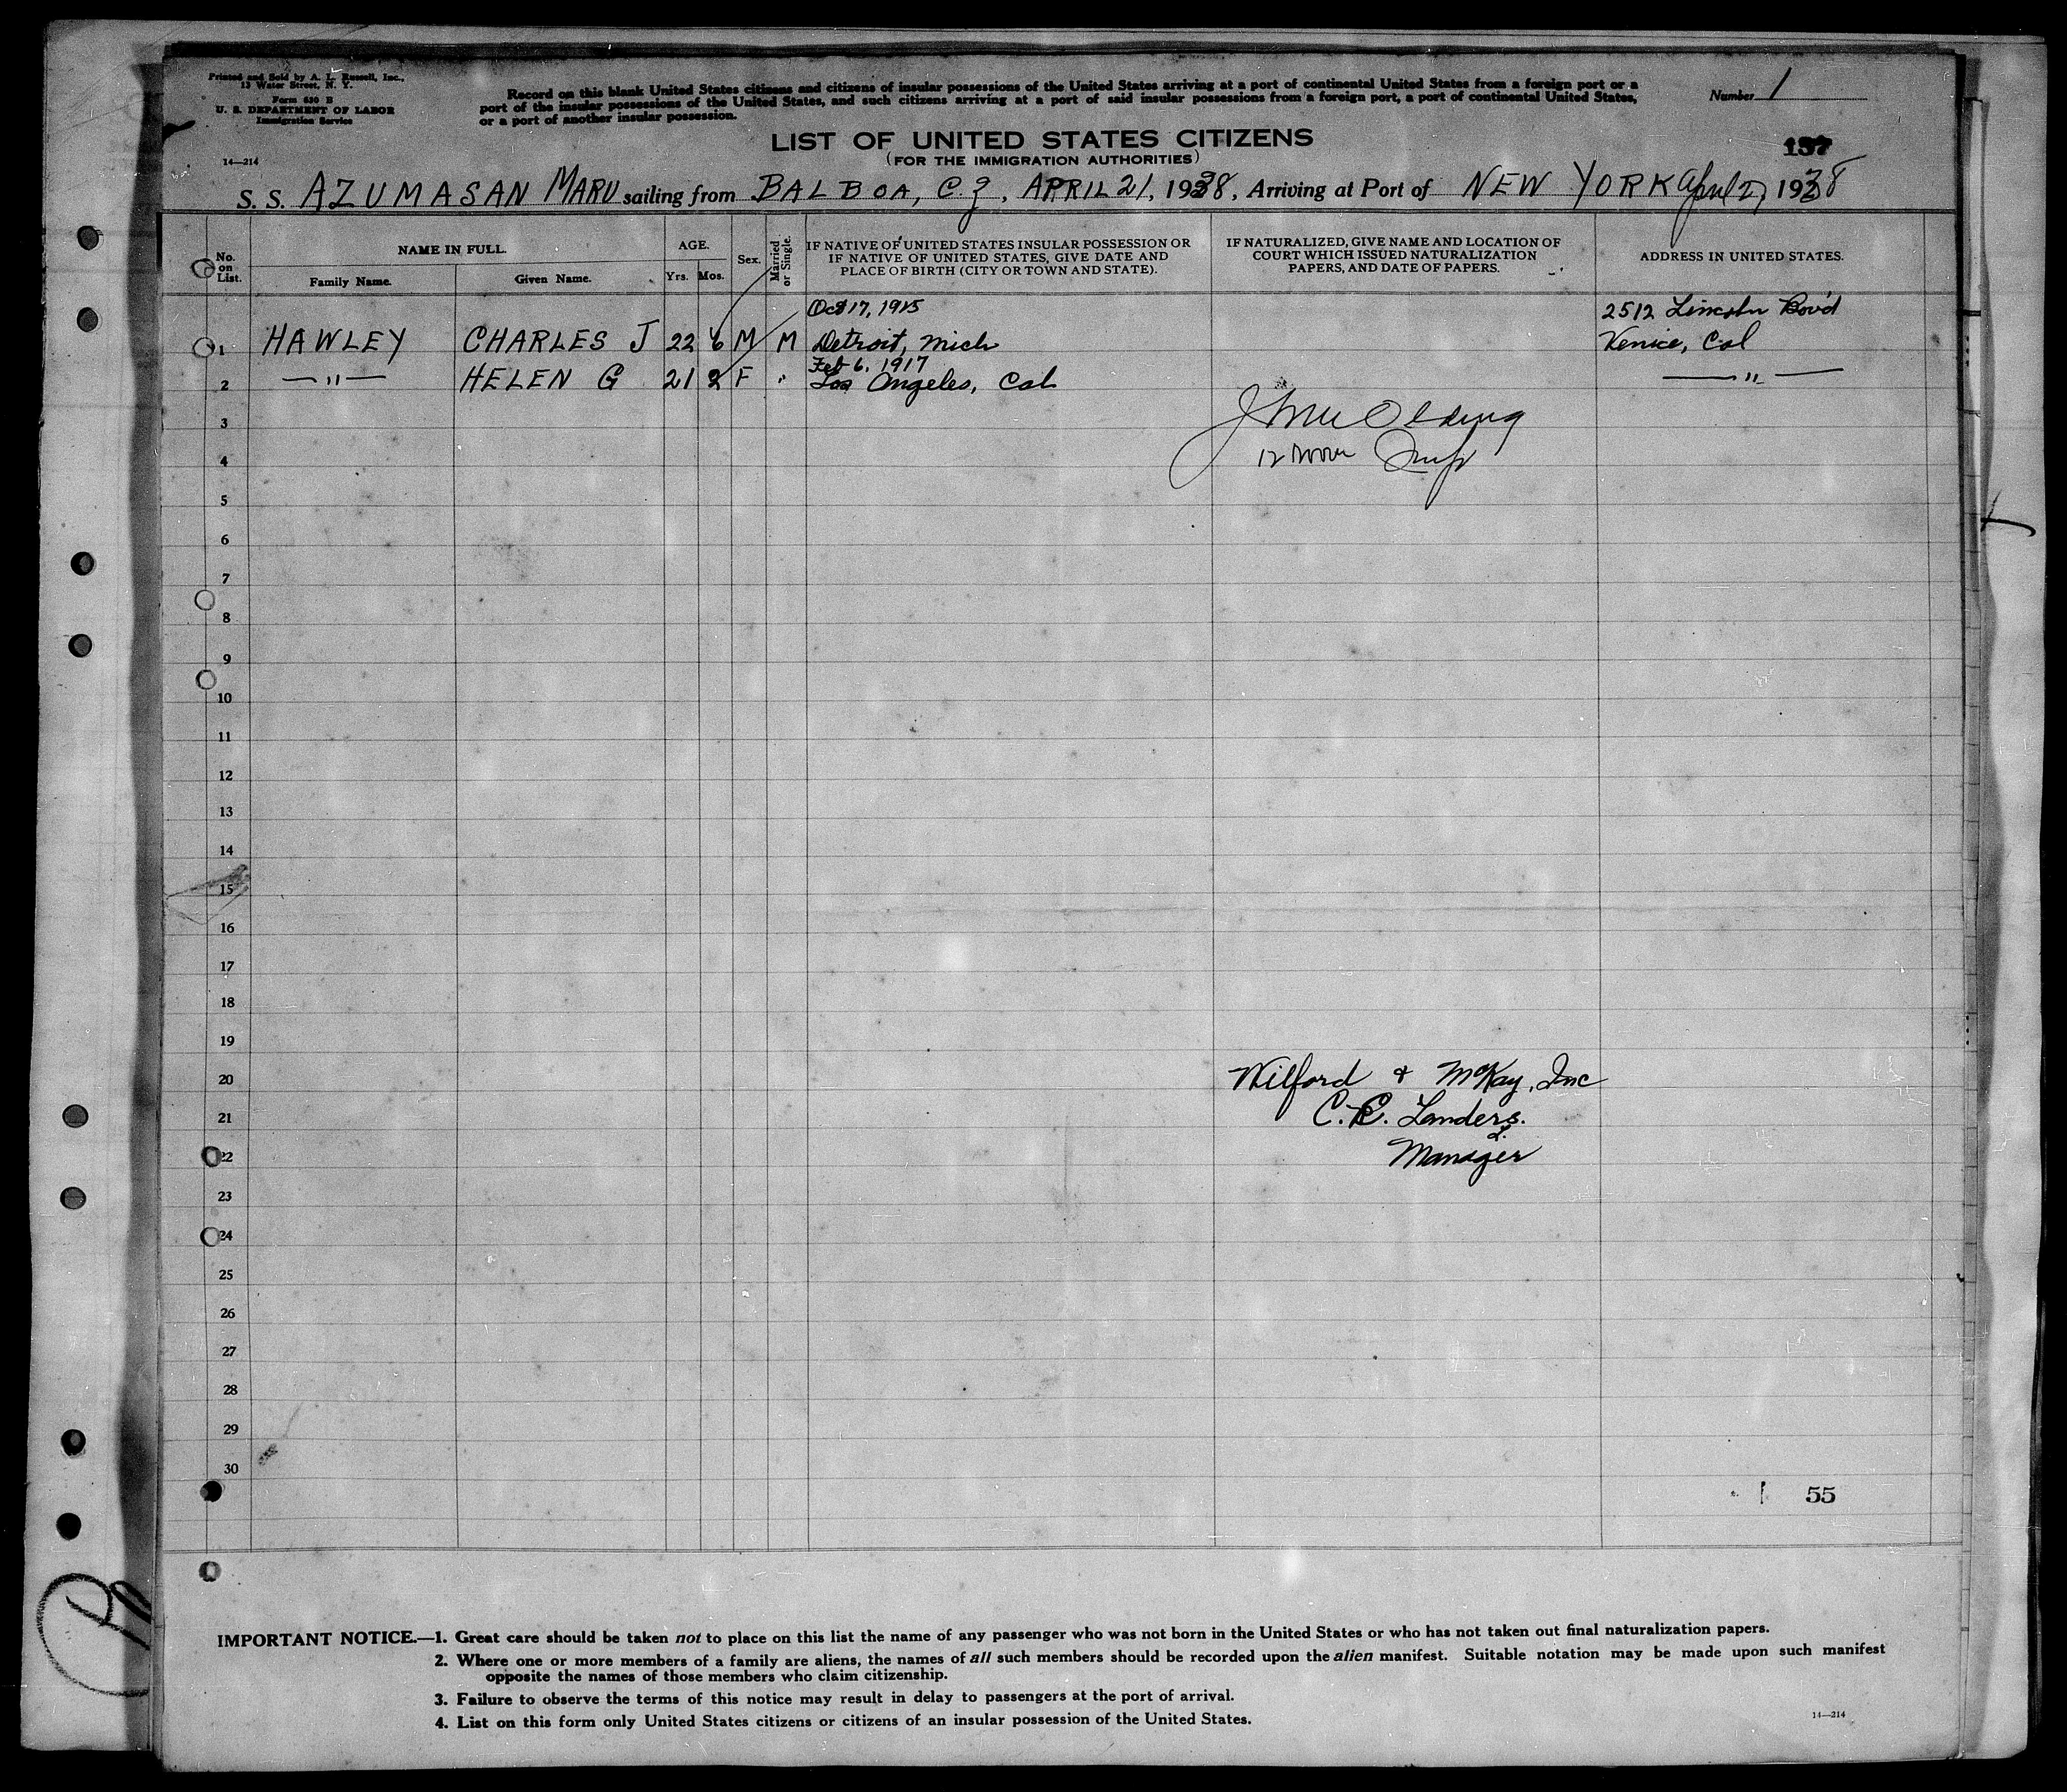 Printed and Sold by A. L. Russell, Inc.,
13 Water Street, N. Y.
Form 630 B
U. S. DEPARTMENT OF LABOR
Immigration Service
14—214
Record on this blank United States citizens and citizens of insular possessions of the United States arriving at a port of continental United States from a foreign port or a
port of the insular possessions of the United States, and such citizens arriving at a port of said insular possessions from a foreign port, a port of continental United States,
or a port of another insular possession.
Number 1
LIST OF UNITED STATES CITIZENS
(FOR THE IMMIGRATION AUTHORITIES)
137
S. S. AZUMASAN MARU sailing from BALBOA, C.Z, APRIL 21, 1938, Arriving at Port of NEW YORK April 27 1938
No. on List.
NAME IN FULL.
Family Name.
Given Name.
AGE.
Yrs. Mos.
Sex.
Married or Single.
IF NATIVE OF UNITED STATES INSULAR POSSESSION OR
IF NATIVE OF UNITED STATES, GIVE DATE AND
PLACE OF BIRTH (CITY OR TOWN AND STATE).
IF NATURALIZED, GIVE NAME AND LOCATION OF
COURT WHICH ISSUED NATURALIZATION
PAPERS, AND DATE OF PAPERS.
ADDRESS IN UNITED STATES.
Oct 17, 1915 2512 Lincoln Bov'd
1 HAWLEY CHARLES J 22 6 M M Detroit, Mich Venice, Cal
Feb 6, 1917
2 —"— HELEN G 21 2 F " Los Angeles, Cal —"—
3
4 12
5
6
7
8
9
10
11
12
13
14
15
16
17
18
19
20 Wilford & McKay, Inc
21 C. C. Landers.
22 Manager
23
24
25
26
27
28
29
30
55
IMPORTANT NOTICE.—1. Great care should be taken not to place on this list the name of any passenger who was not born in the United States or who has not taken out final naturalization papers.
2. Where one or more members of a family are aliens, the names of all such members should be recorded upon the alien manifest. Suitable notation may be made upon such manifest
opposite the names of those members who claim citizenship.
3. Failure to observe the terms of this notice may result in delay to passengers at the port of arrival.
4. List on this form only United States citizens or citizens of an insular possession of the United States.
14—214